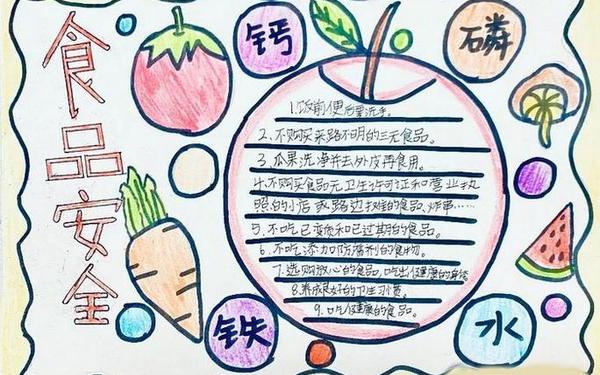 食品安全
钙
磷
1.饭前便后要洗手。
2.不购买来路不明的三无食品。
3.瓜果洗净并去外皮再食用。
4.不购买食品无卫生许可证和营业执
照的小店或路边摊的食品,炸串……
5.不吃已变质和已过期的食品。
6.不吃添加防腐剂的食物。
7.选购放心的食品,吃出健康的身体
8.养成良好的卫生习惯。
9.吃健康的食品。
铁
水